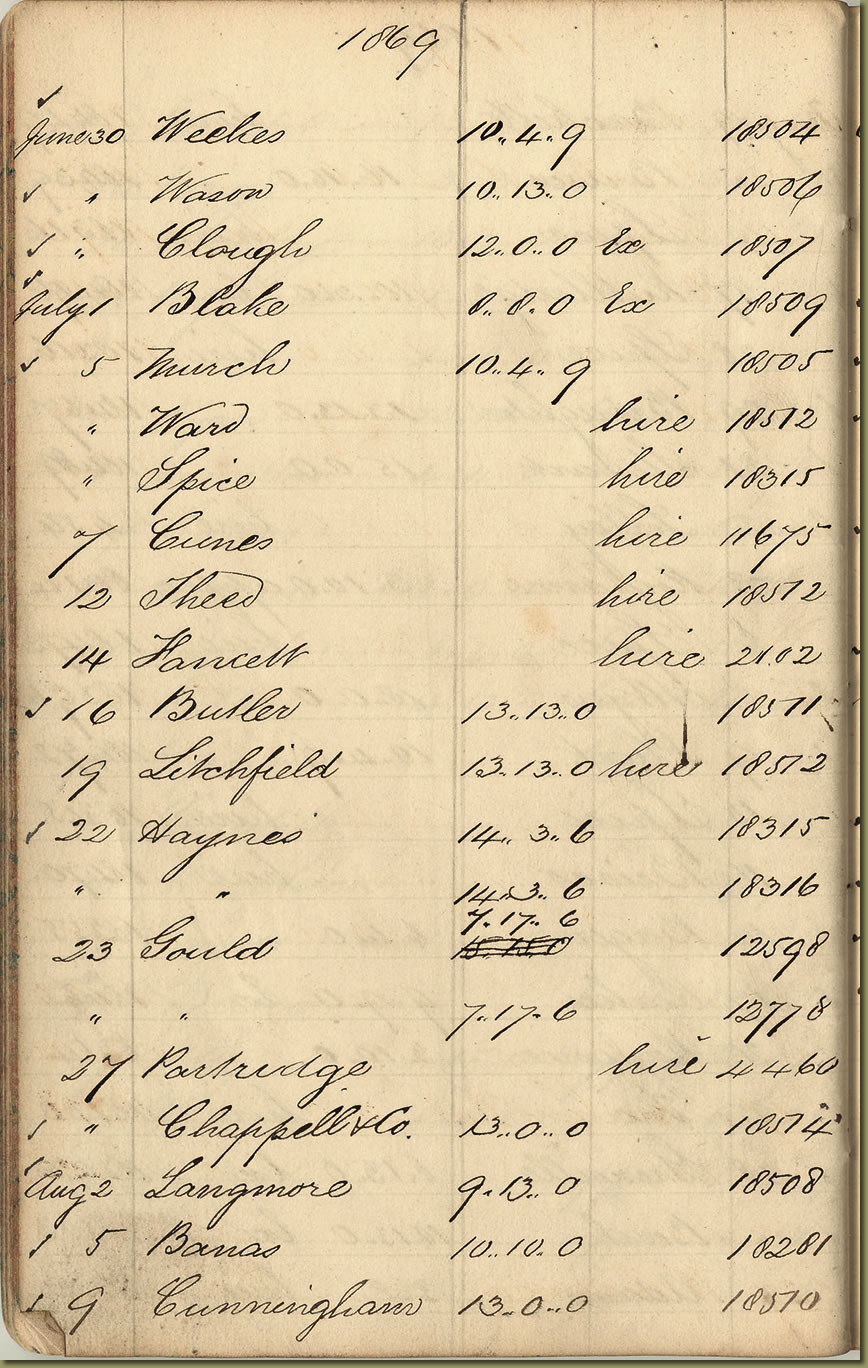 1869
June 30 Weekes 10..4..9 18504
" Wason 10..13..0 18506
" Clough 12..0..0 Ex 18507
July 1 Blake 8..8..0 Ex 18509
5 Murch 10..4..9 18505
" Ward hire 18512
" Spice hire 18315
7 Cunes hire 11675
12 Theed hire 18512
14 Fancett hire 21.02
16 Butler 13..13..0 18511
19 Litchfield 13.13.0 hire 18512
22 Haynes 14..3..6 18315
" " 14..3..6 18316
7.17..6
23 Gould 12598
" " 7..17..6 12778
27 Partridge hire 4460
" Chappell & Co. 13..0..0 18514
Aug 2 Langmore 9.13..0 18508
5 Banas 10..10..0 18281
9 Cunningham 13..0..0 18510